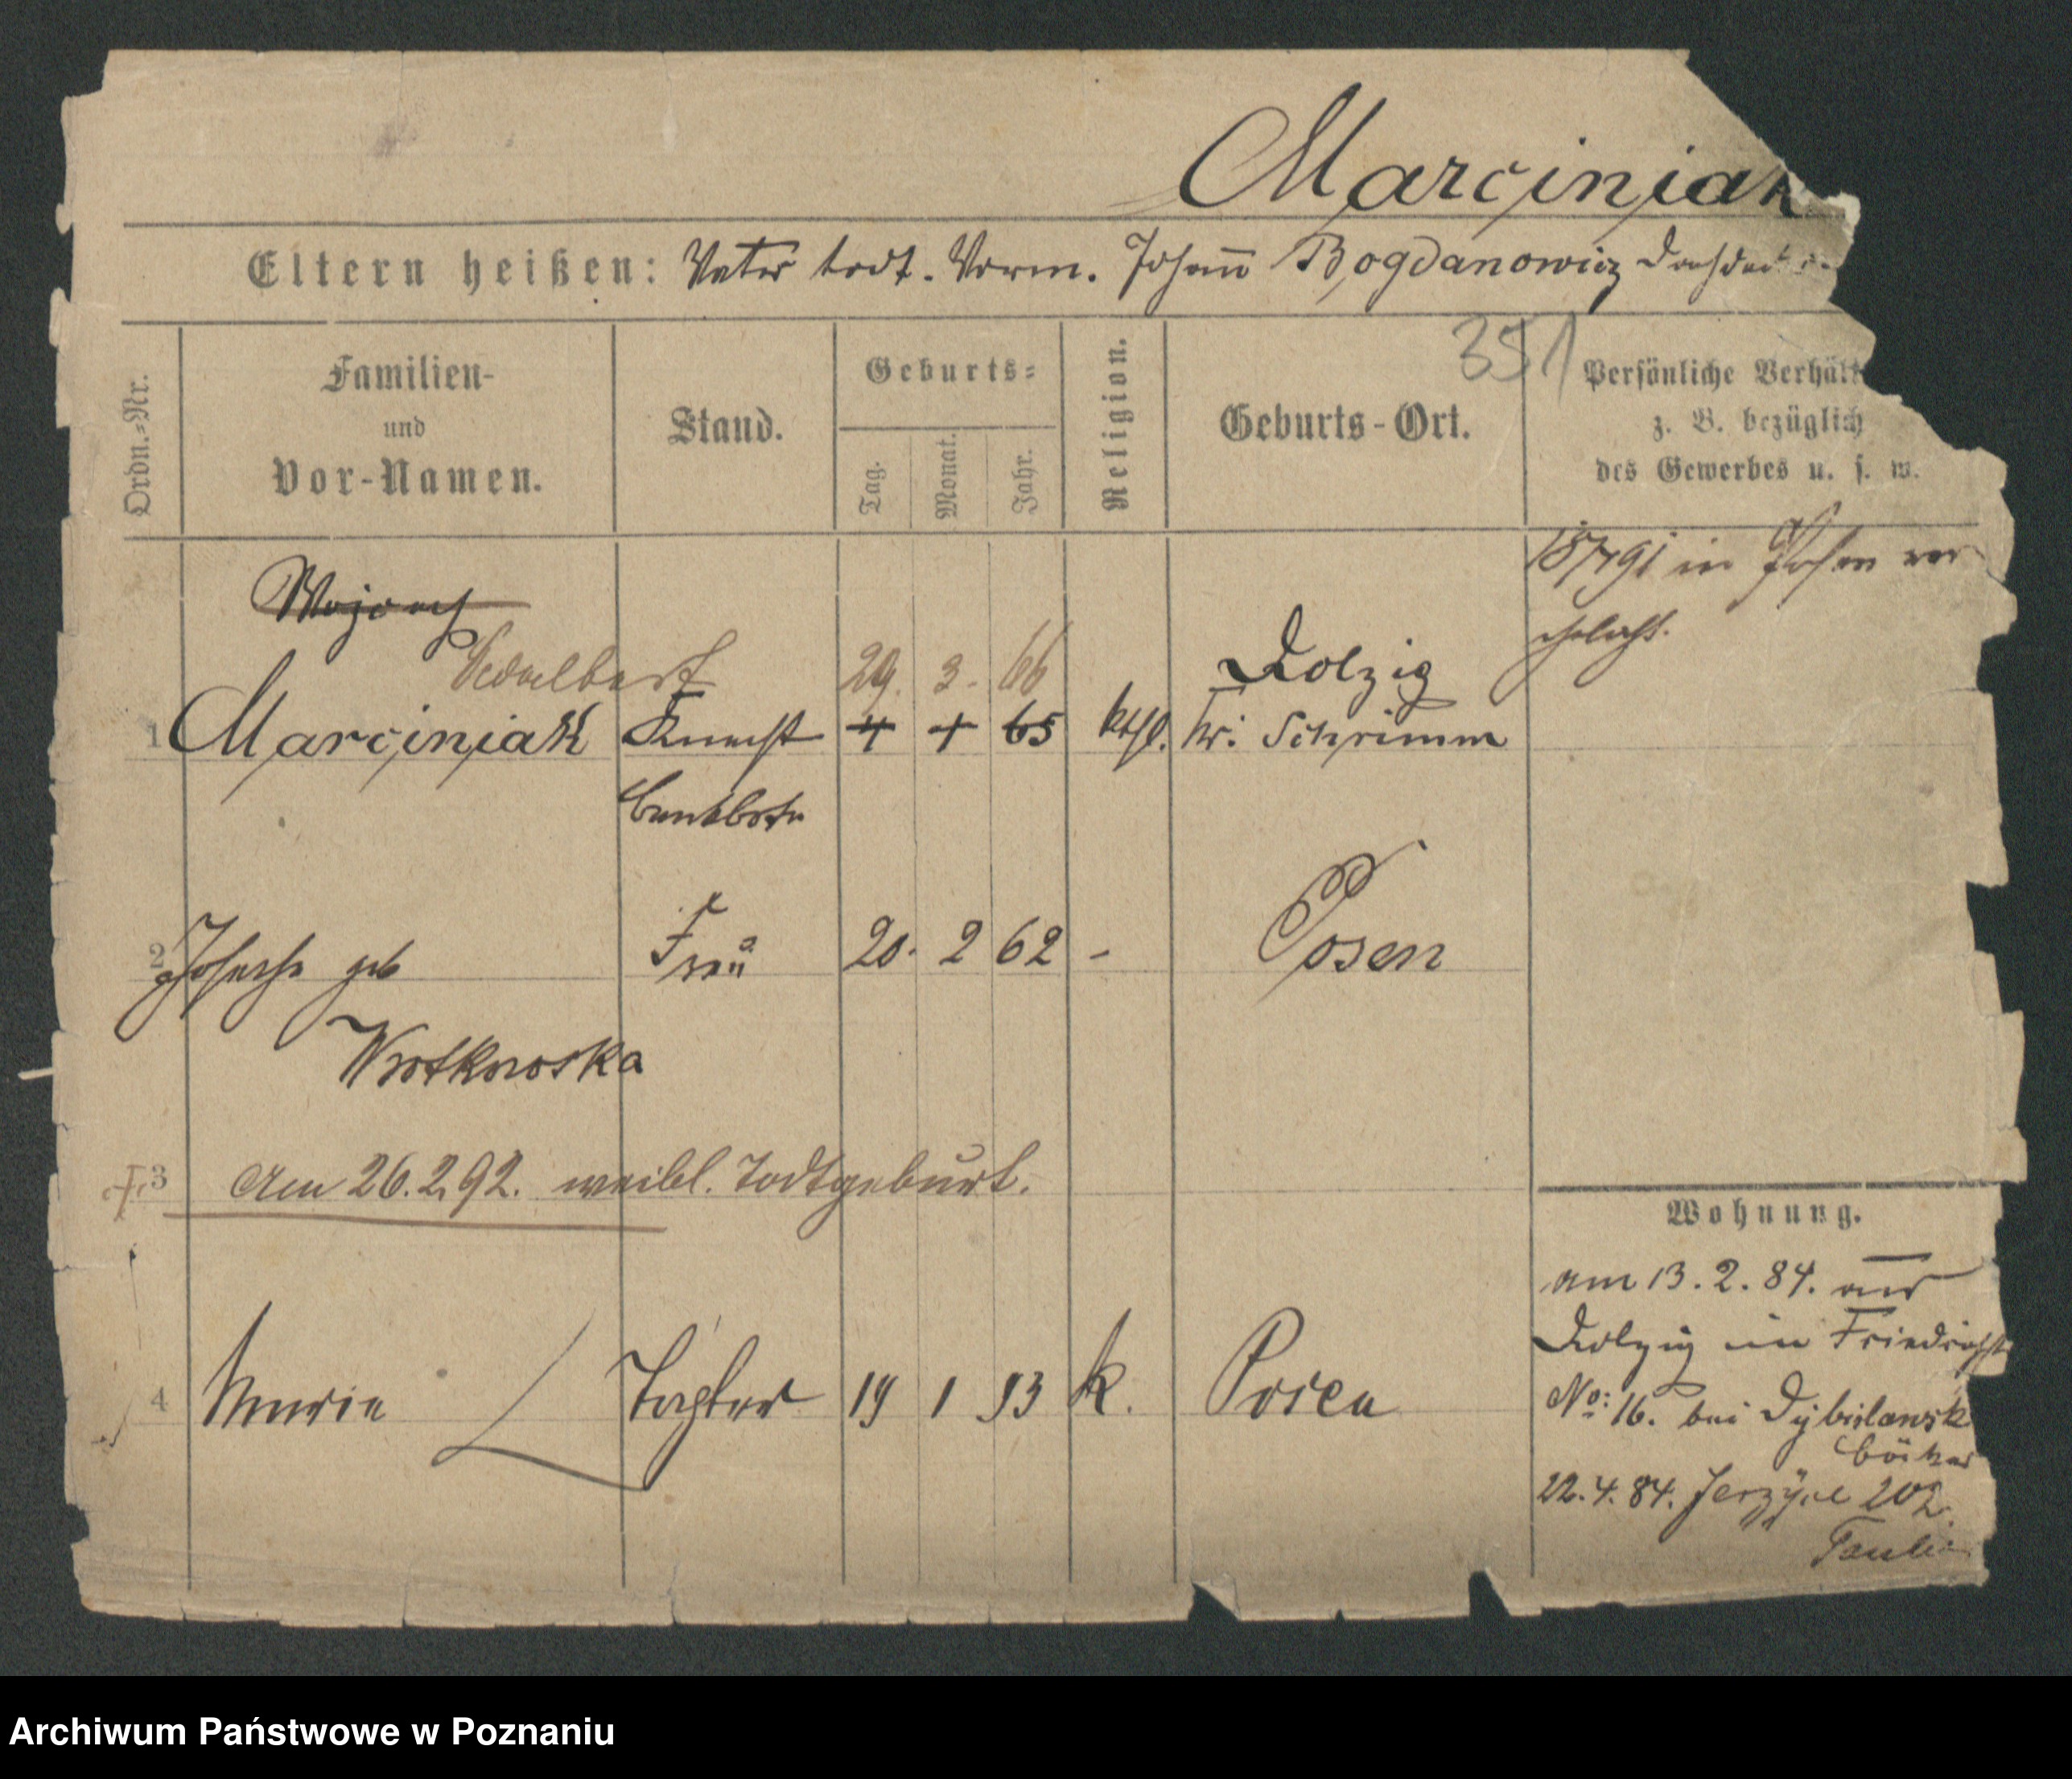 Marciniak
Eltern heißen: Vater todt. Vorm. Johann Bogdanowicz
351
Ordn.=Nr.
Familien-
und
Vor-Namen.
Stand.
Geburts=
Tag.
Monat.
Jahr.
Religion.
Geburts-Ort.
Persönliche Verhält
z. B. bezüglich
des Gewerbes u. s. w.
in Posen ver
ehelicht.
29. 3. 66
Dolzig
1 Marciniak Knecht 4 4 65 kthl. Kr. Schrimm
2 Josepha geb Frau 20. 2 62 - Posen
Wrotkowska
3 Am 26.2.92. weibl. Todtgeburt.
Wohnung.
am 13. 2. 84. aus
Dolzig in Friedrichst
4 Maria Tochter 19 1 93 k. Posen
No: 16. bei
22. 4. 84. Jerzyce 202